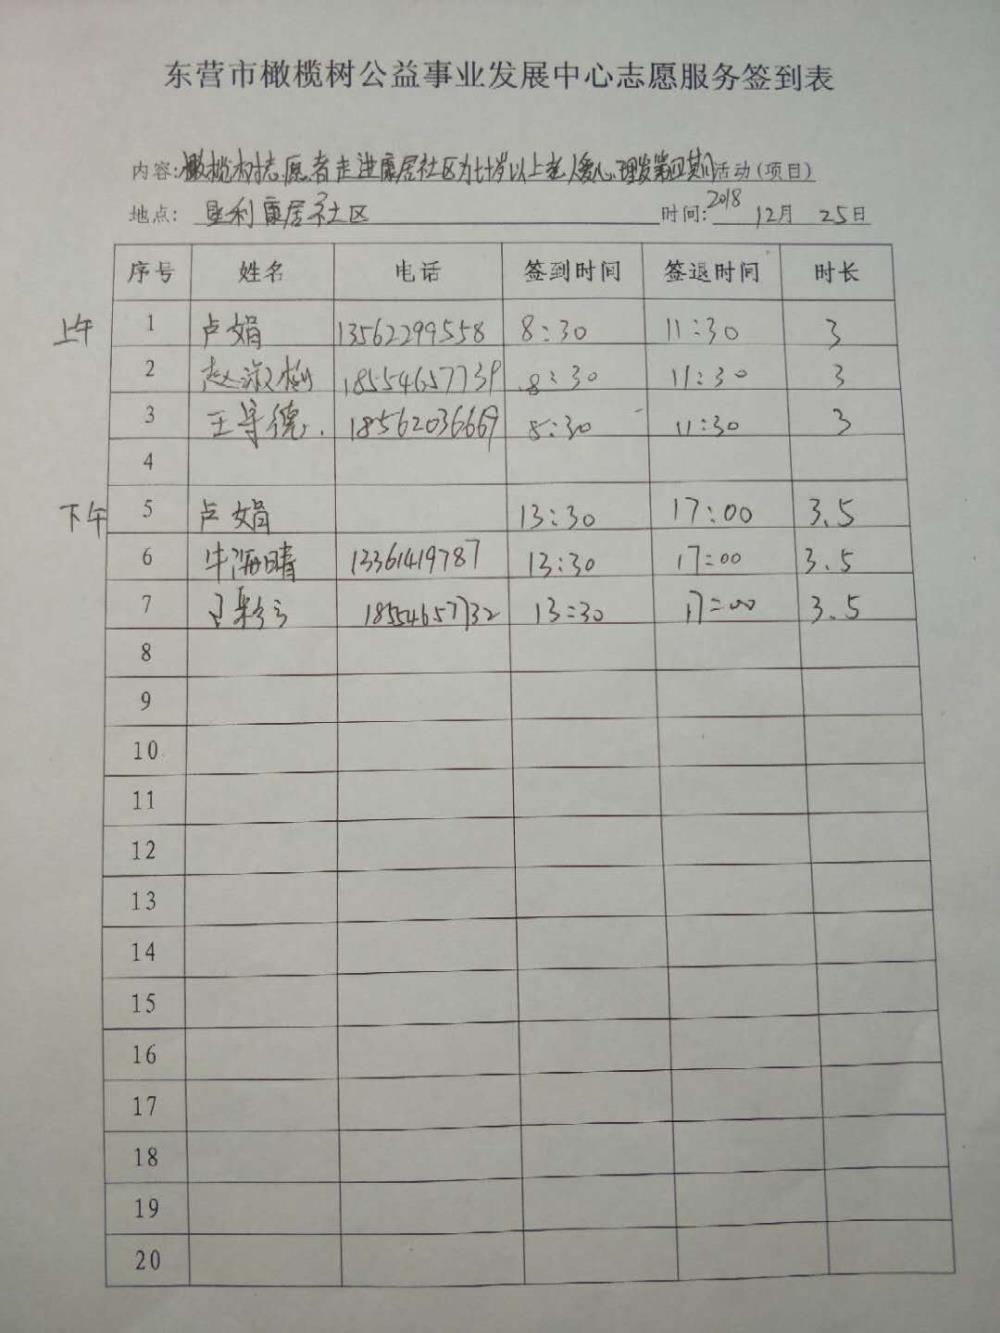 东营市橄榄树公益事业发展中心志愿服务签到表
内容:橄榄树志愿者走进康居社区为七十岁以上老人爱心理发第四期活动(项目)
地点: 垦利康居社区 时间:2018 12月 25日
序号 姓名 电话 签到时间 签退时间 时长
上午 1 卢娟 13562299558 8:30 11:30 3
2 赵淑梅 18554657739 8:30 11:30 3
3 王导德. 18562036669 8:30 11:30 3
4
下午 5 卢娟 13:30 17:00 3.5
6 牛海晴 13361419787 13:30 17:00 3.5
7 18554657732 13:30 17:00 3.5
8
9
10
11
12
13
14
15
16
17
18
19
20